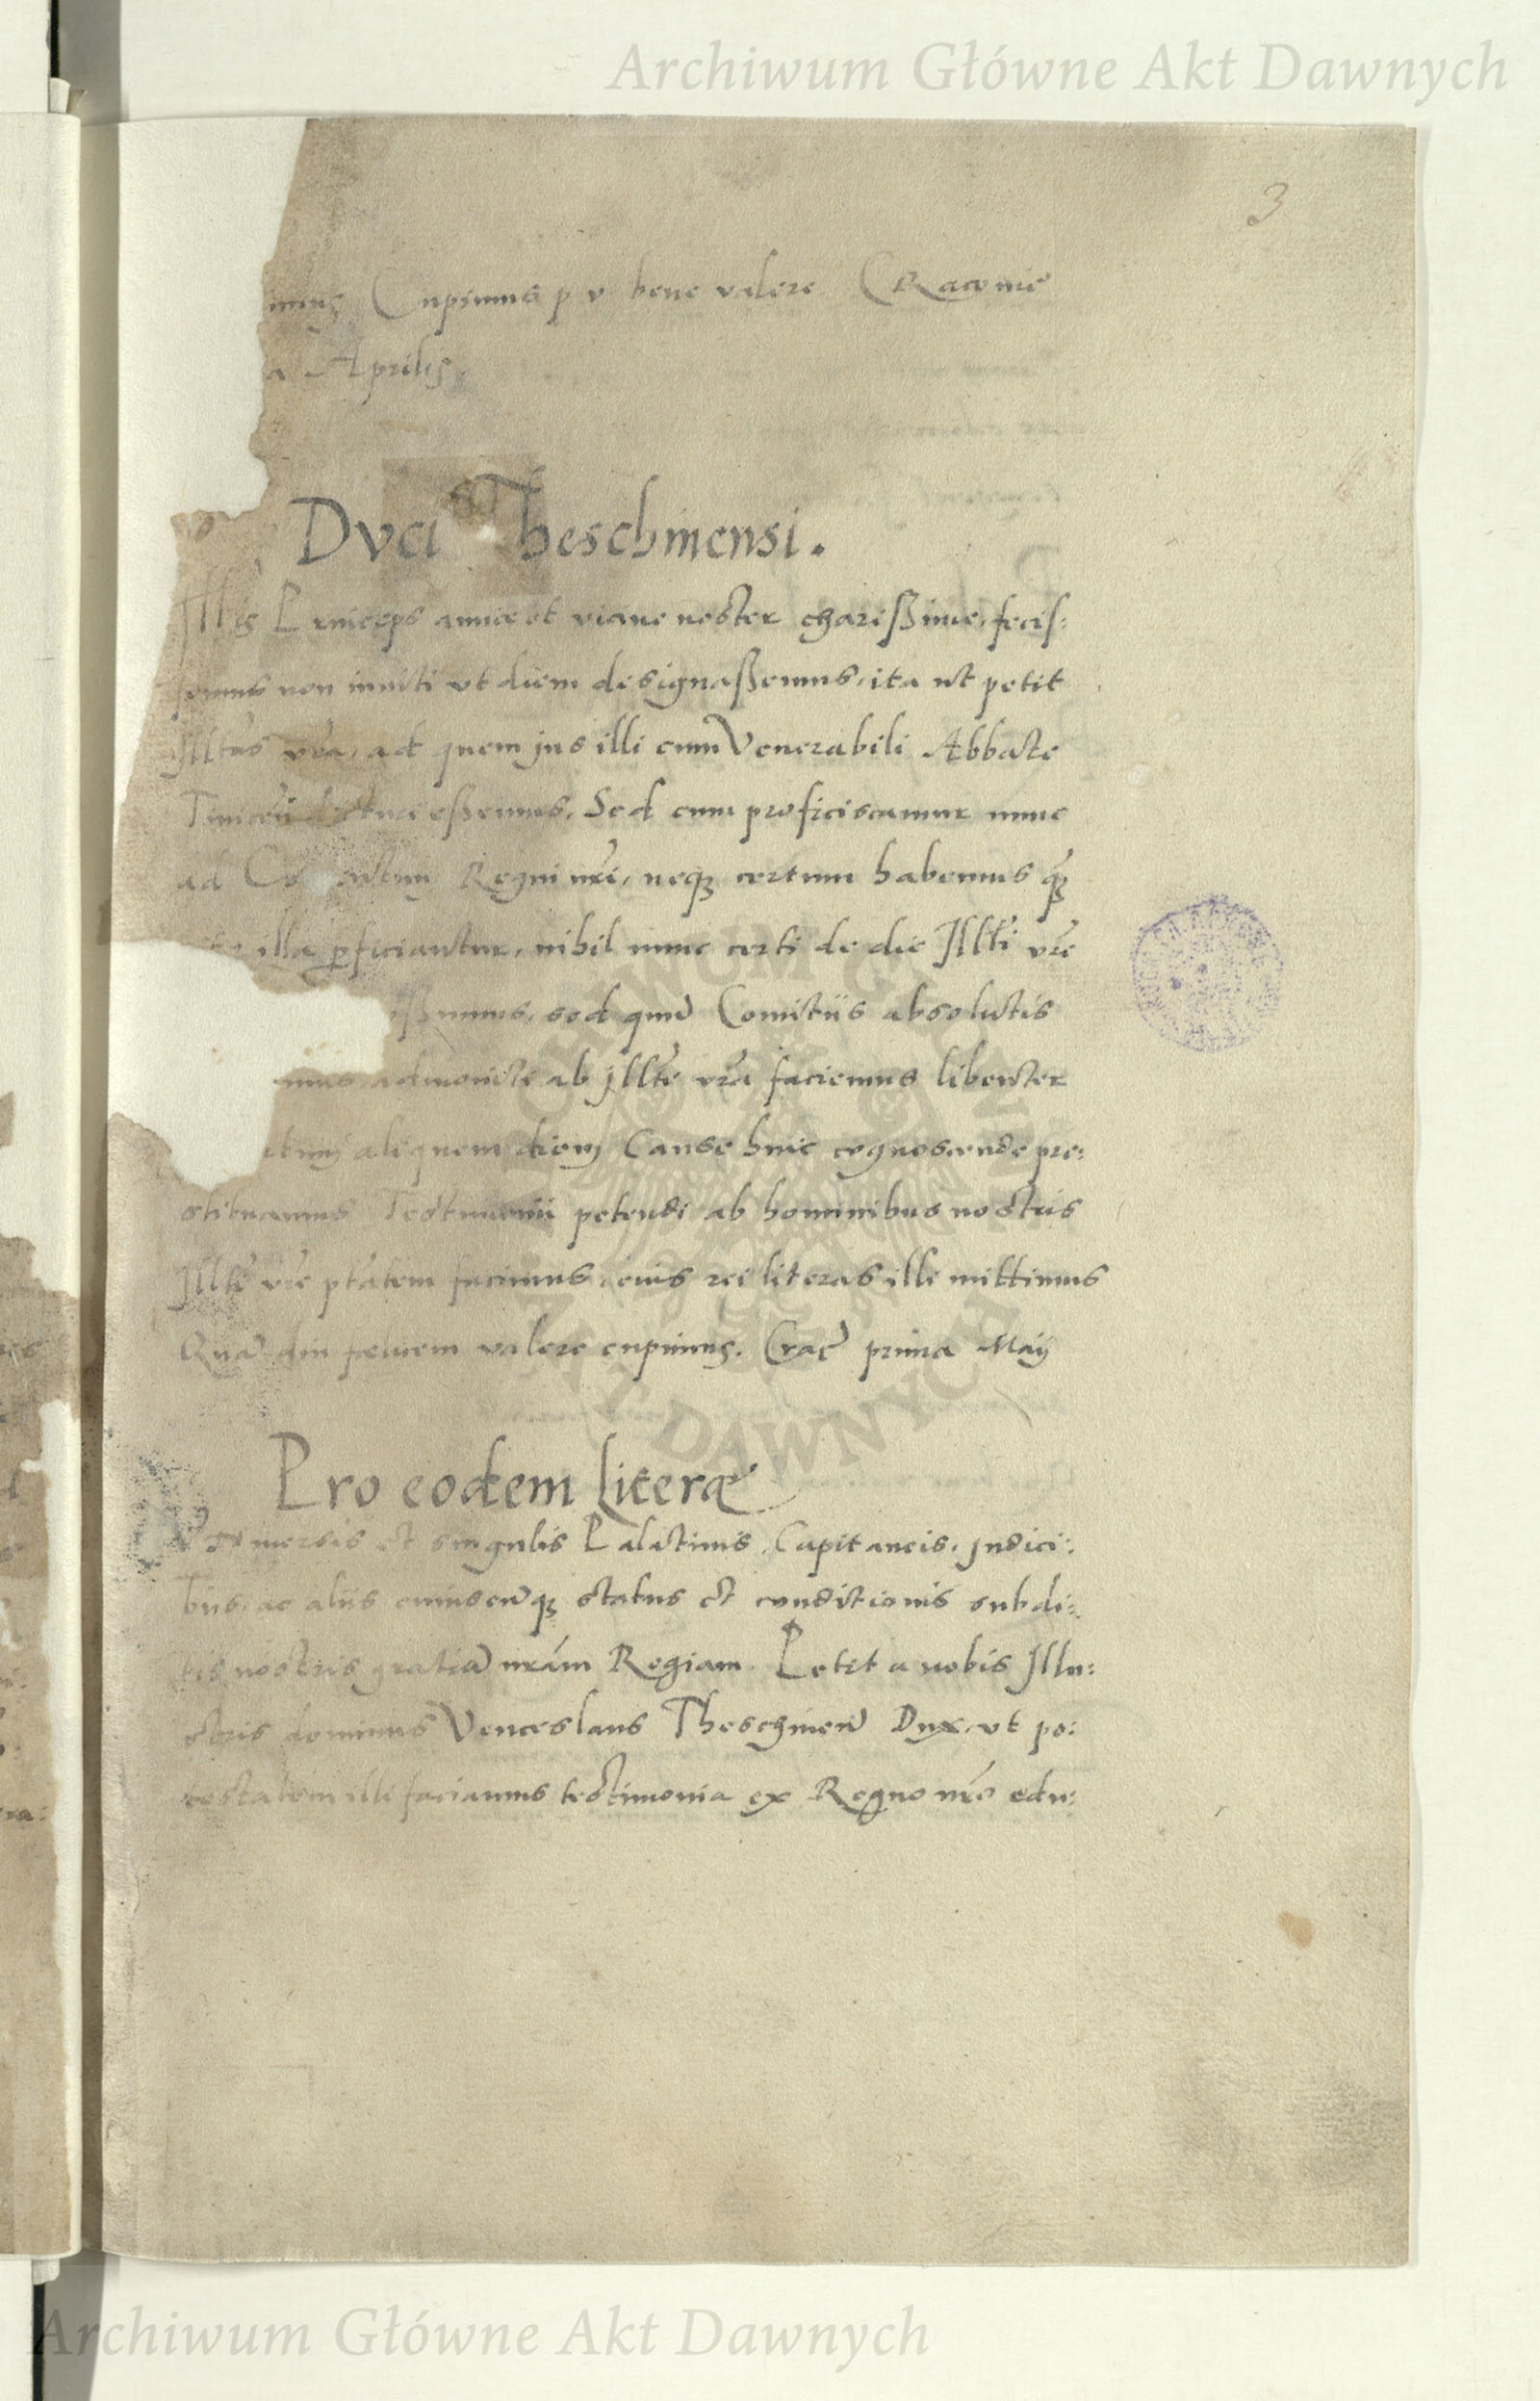 Archiwum Główne Akt Dawnych
3
Cupimus p v bene valere CRacouie
a Aprilis.
Dvci Theschinensi.
Illis Princeps amice et vicine noster charißime, fecis:
semus non inuiti vt diem designaßemus, ita ut petit
Illtas vra, ad quem jus illi cum Venerabili Abbate
eßemus. Sed cum proficiscamur nunc
ad Regni nri, neq; certum habemus
illa pficiantur, nihil nunc certi de die Illti vre
ißimus, sed qum Comitiis absolutis
mus, admoniti ab Jllte vra faciemus libenter
aliquem diem Cause huic cognoscende pre:
stituamus Testimonii petendi ab hominibus nostris
Illti vre ptatem facimus, eius rei literas illi mittimus
Qua diu felicem valere cupimus. Crac prima Maij
Pro eodem Literæ
Vniuersis et singulis Palatinis, Capitaneis, Judici:
bus, ac aliis cuiuscuq; status et conditionis subdi:
tis nostris gratia nram Regiam. Petit a nobis Illu:
stris dominus Venceslaus Theschinen Dux, vt po:
testatem illi faciamus testimonia ex Regno nro edu:
ARCHIWUM GŁÓWNE AKT DAWNYCH
Archiwum Główne Akt Dawnych